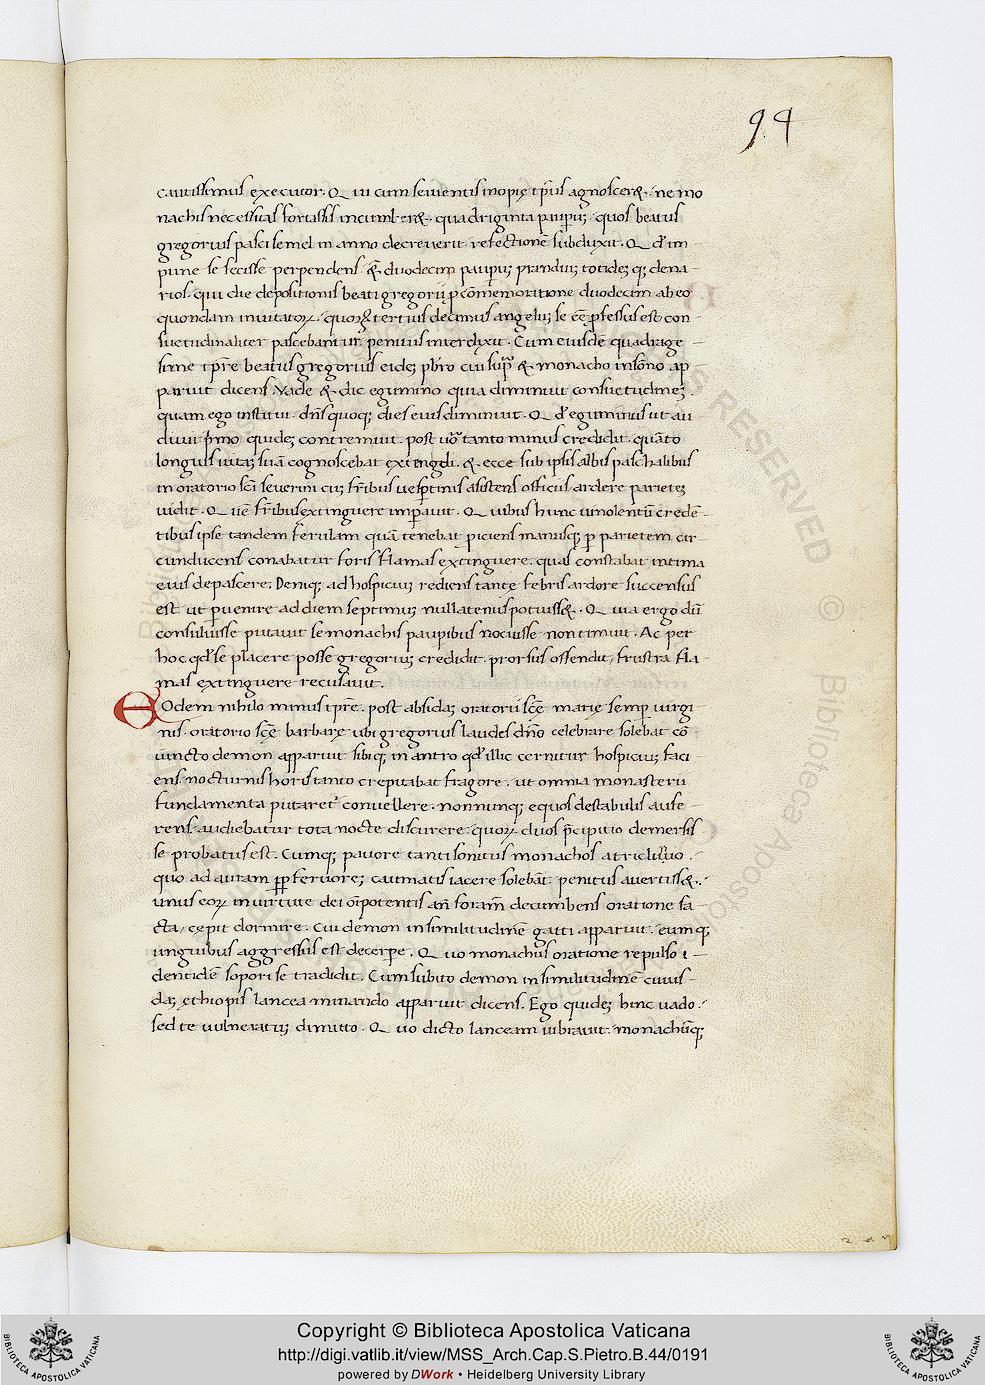 94
cautissimus executor. Qui cum seuientis inopię tp̄us agnosceret. ne mo
nachis necessitas fortassis incumberet. quadraginta paup̄um quos beatus
gregorius pasci semel in anno decreuerit refectionē subduxit. Qd̓ im-
pune se fecisse perpendens. & duodecim paup̄um prandium totidemq; dena-
rios. qui die depositionis beati gregorii p̱ cōmemoratione duodecim ab eo
quondam inuitatoꝝ. quoꝝ tertius decimus angelus se eē p̱fessus est con
suetudinaliter pascebantur penitus interdixit. Cum eiusdē quadrage-
sime tp̄re beatus gregorius eidem pbr̄o cui sup̄ & monacho in sōno ap
paruit dicens. Vade & dic egumino quia diminuit consuetudinem.
quam ego institui. dn̄s quoq; dies eius diminuit. Qd̓ eguminus ut au
diuit p̄mo quidem contremuit. post uō tanto minus credidit. quāto
longius uitam suā cognoscebat extingdi. & ecce sub ipsis albis paschalibus
in oratorio sc̄i seuerini cum fr̄ibus uesp̱tinis assistens officiis ardere parietem
uidit. Quē fr̄ibus extinguere imp̱auit. Quibus hunc uinolentū credē-
tibus ipse tandem ferulam quā tenebat piciens manusq; p̱ parietem cir
cunducens conabatur foris flamas extinguere. quas constabat intima
eius depascere. Deniq; ad hospicium rediens tantę febris ardore succensus
est. ut p̱uenire ad diem septimum nullatenus potuisset. Quia ergo dū
consuluisse putauit se monachis paupibus nocuisse non timuit. Ac per
hoc qd̓ se placere posse gregorium credidit. prorsus offendit, frustra fla-
mas extinguere recusauit.
EOdem nihilo minus tp̄re. post absidam oratorii sc̄ę marię semp̱ uirgi-
nis. oratorio sc̄ę barbarę ubi gregorius laudes dn̄o celebrare solebat cō
iuncto demon apparuit sibiq; in antro qd̓ illic cernitur hospicium faci
ens. nocturnis horis tanto crepitabat fragore. ut omnia monasterii
fundamenta putaret̓ conuellere. nonnunq; equos de stabulis aufe-
rens. audiebatur tota nocte discurere. quoꝝ duos p̄cipitio demersis
se probatus est. Cumq; pauore tanti sonitus monachos a triclinio.
quo ad auram p̱p̱ feruorem caumatis iacere solebāt. penitus auertisset.
unus eoꝝ in uirtute dei oīpotentis an̄ foram̄ decumbens oratione fa-
cta, cępit dormire. Cui demon in similitudinē gatti apparuit. eumq;
unguibus aggressus est decerpe. Quo monachus oratione repulso i-
dentidē sopori se tradidit. Cum subito demon in similitudinē cuius-
dam ethiopis lancea minando apparuit dicens. Ego quidem hinc uado.
sed te uulneratum dimitto. Quo dicto lanceam uibrauit. monachūq;
Copyright © Biblioteca Apostolica Vaticana
http://digi.vatlib.it/view/MSS_Arch.Cap.S.Pietro.B.44/0191
powered by DWork • Heidelberg University Library